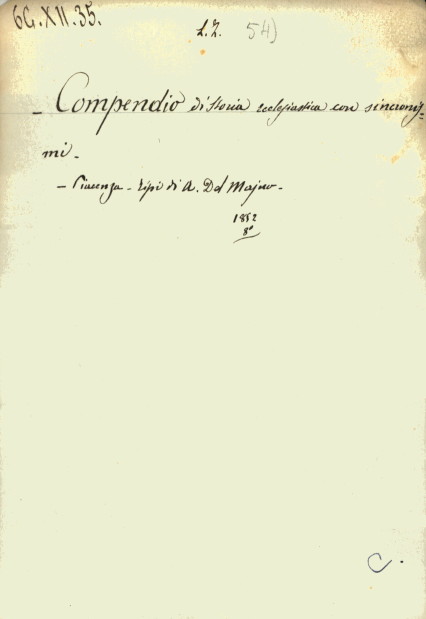 6G.XII.35.
L.Z. 54)
- Compendio di storia ecclesiastica con sincronis=
mi -
- Piacenza - Tipi di A. Del Majno -
1852
8°
C.